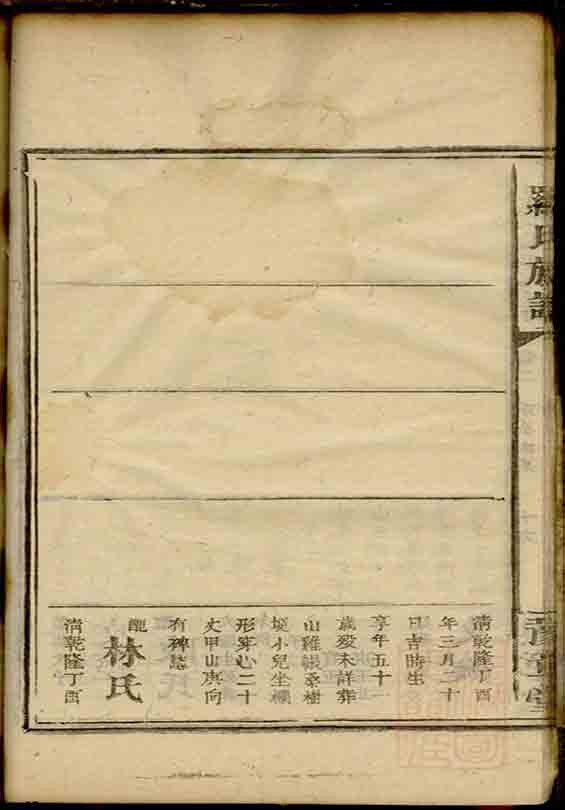 羅氏族譜
清乾隆丁酉
年三月二十
日吉時生
享年五十一
歲歿未詳葬
山雞嶑桑樹
埂小兒坐欄
形穿心二十
丈甲山庚向
有碑誌
配 林氏
清乾隆丁酉
豫章堂